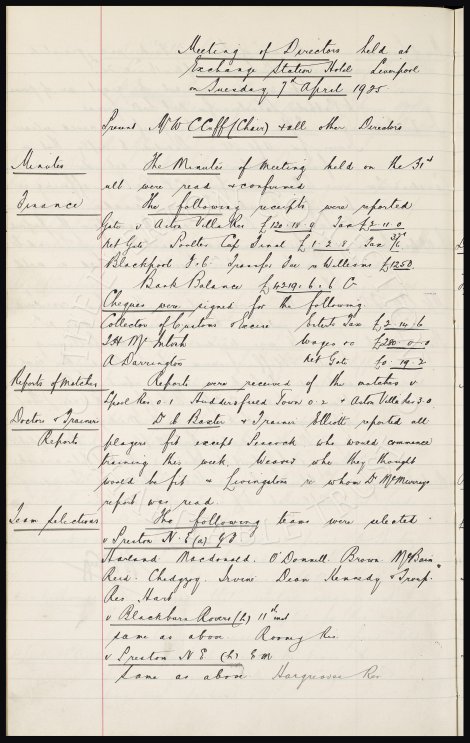 Meeting of Directors held at
Exchange Station Hotel Liverpool
on Tuesday 7th April 1925
Present Mr W C Cuff (Chair) & all other Directors
Minutes The Minutes of Meeting held on the 31st
ult were read & confirmed
Finance The following receipts were reported
Gate v Aston Villa Res £120.18.9 Tax £2.11.0
Net Gate Cup Final £1.2.8 Tax
Blackpool F.C. Transfer Fee v Williams £1250
Bank Balance £4319.6.6 C
Cheques were signed for the following
Collector of Customs & Excise Ents Tax £2.14.6
J H McIntosh Wages &c £280.0.0
A Darrington Net Gate £0.19.2
Reports of matches Reports were received of the matches v
Lpool Res 0.1 Huddersfield Town 0.2 & Aston Villa Res 3.0
Doctor & Trainer Dr C Baxter & Trainer Elliott reported all
Reports players fit except Peacock who would commence
training this week, Weaver who they thought
would be fit & Livingstone re whom Dr McMurrays
report was read.
Team Selections The following teams were selected
v Preston N.E (a) G.F.
Harland Macdonald. O'Donnell. Brown McBain
Reid. Chedgzoy. Irvine Dean Kennedy & Troup.
Res Hart
v Blackburn Rovers (h) 11th inst
same as above Rooney Res
v Preston N E (h) E M
same as above Hargreaves Res